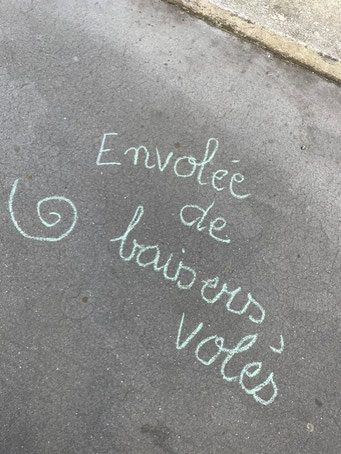 Envolée
de
baisers
volés